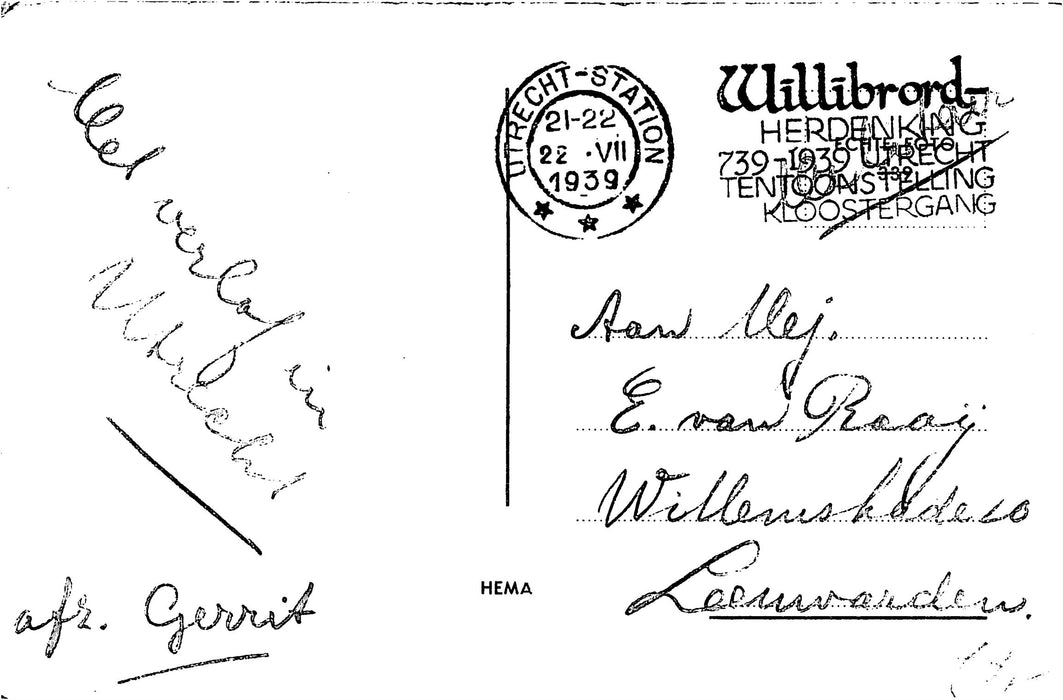 Met
verlof in
Utrecht
afz. Gerrit
UTRECHT-STATION
21-22
22 · VII
1939
Willibrord-
HERDENKING
739-1939 UTRECHT
TENTOONSTELLING
KLOOSTERGANG
ECHTE FOTO
Aan Mej.
E. van Raaij
Willemskade
Leeuwarden.
HEMA